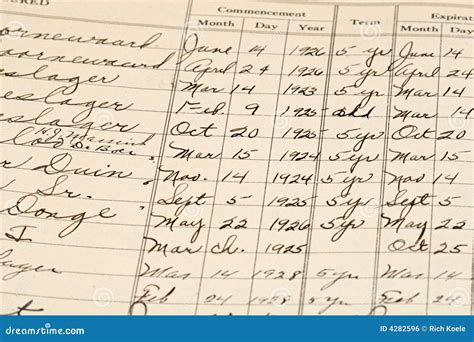 RED Commencement Term Expirat
Month Day Year Month Day
ornewaard June 4 1926 5 yr June 14
oornewaard April 24 1926 5 yr April 24
slager Mar 14 1923 5 yr Mar 14
eslager Feb. 9 1925 Feb 9
eslager Oct 20 1925 5 yr Oct 20
De Boer Mar 15 1924 5 yr Mar 15
r Duin Nov. 14 1924 5 yr Nov 14
Sr. Sept 5 1925 5 yr Sept 5
Donge May 22 1926 5 yr May 22
I Mar ch. 1925 Oct 25
slager Mar 14 1928 5 yr Mar 14
Feb 24 1928 5 yr Feb 24
dreamstime.com
ID 4282596 © Rich Koele